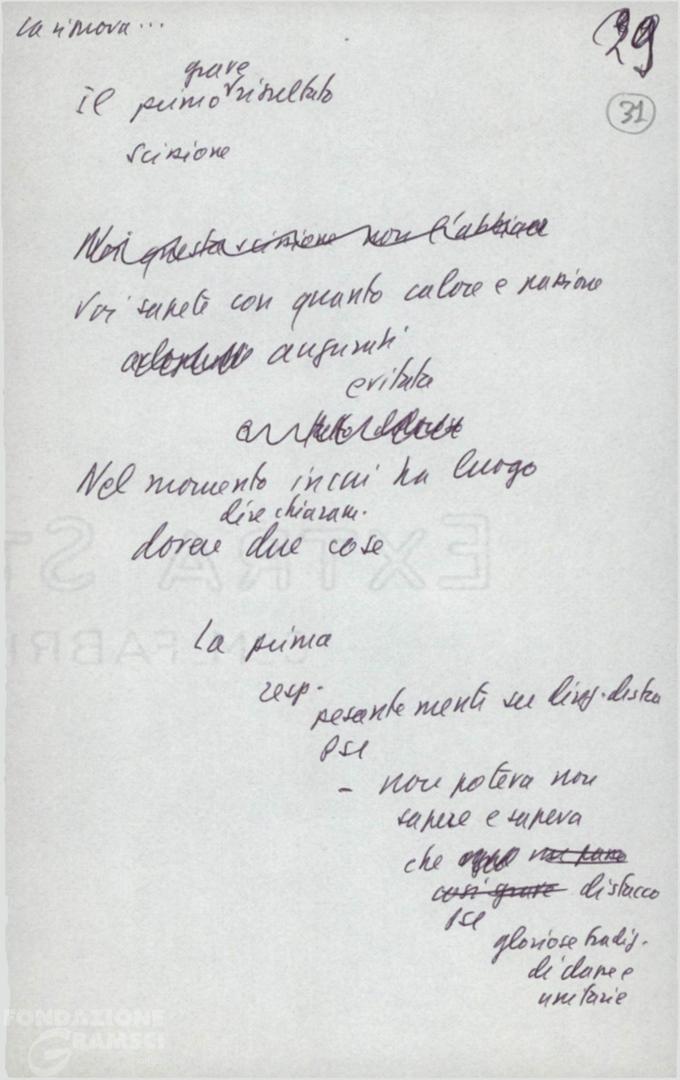 La nuova...
29
31
grave
il primo risultato
scissione
Noi questa scissione non l'abbiam
Voi sapete con quanto calore e passione
augurati
evitata
Nel momento in cui ha luogo
dire chiaram.
dovere due cose
EXTRA ST
FABRI
La prima
resp.
pesantemente su dirig. destra
PSI
- non poteva non
sapere e sapeva
che
così grave distacco
PSI
gloriose tradiz.
di classe e
unitarie
FONDAZIONE
GRAMSCI